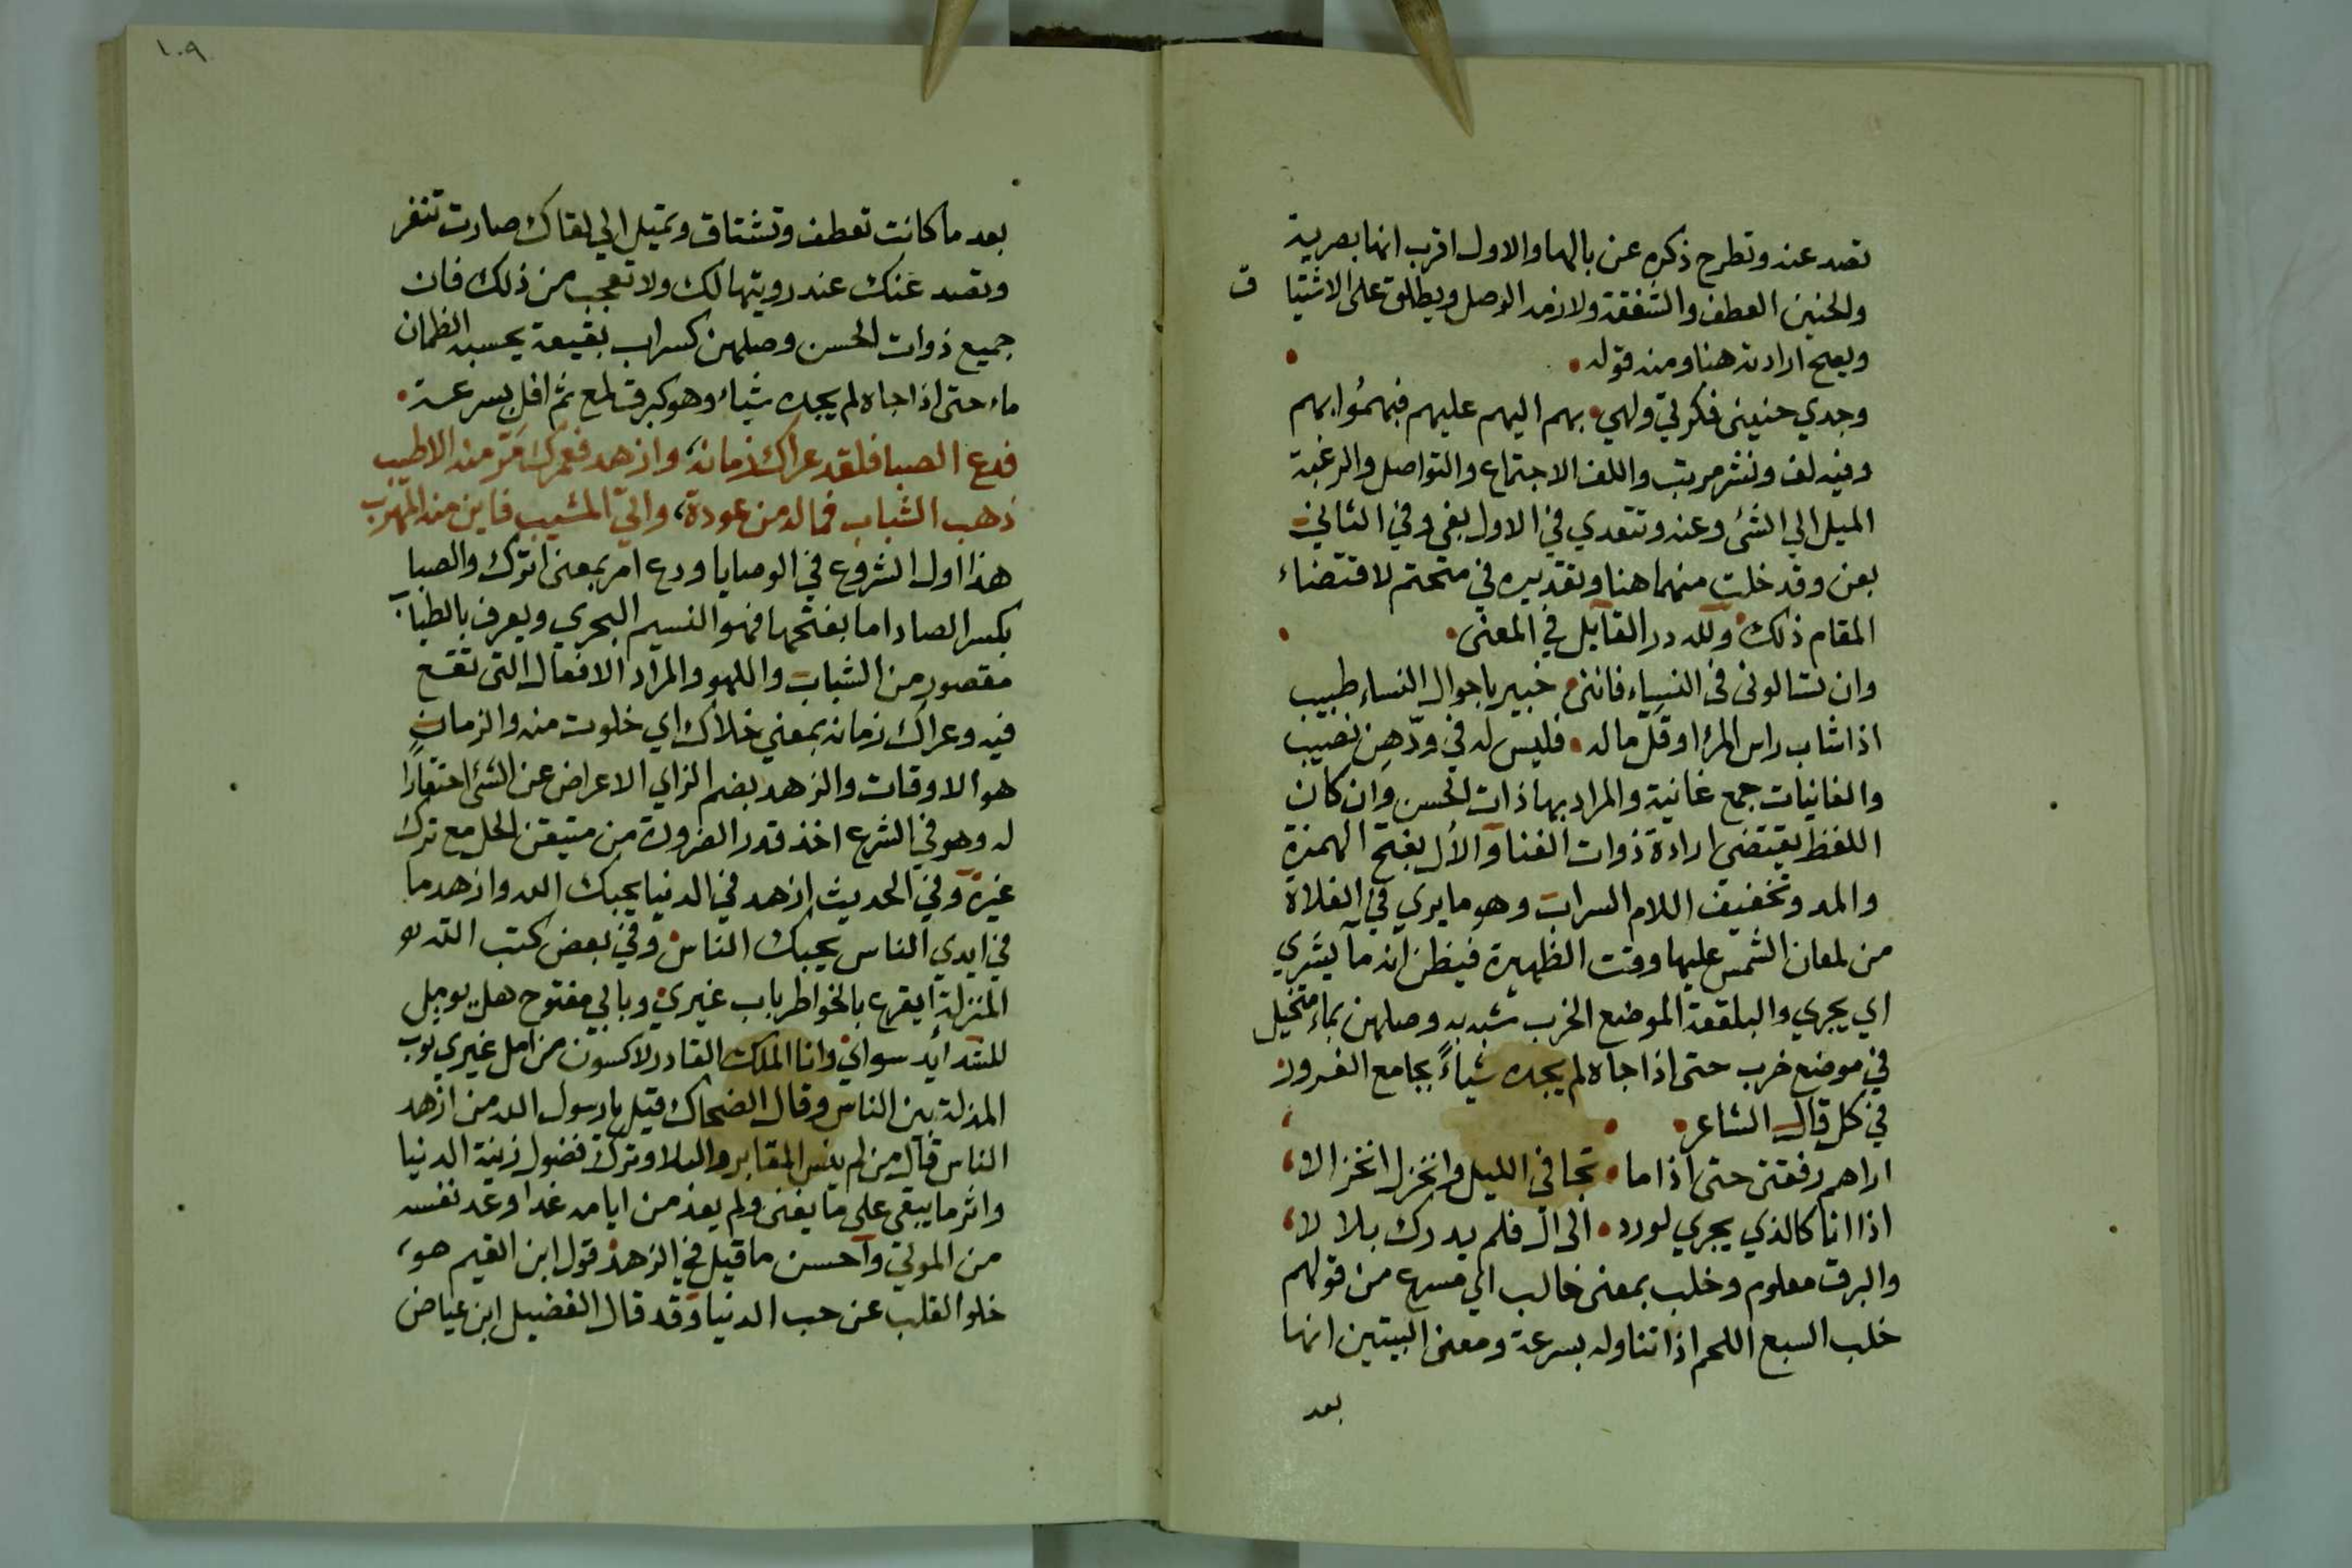 تصد عنه وتطرح ذكره عن بالها والاول اقرب انها بصرية
والحنين العطف والشفقة ولازمه الوصل ويطلق على الاشتياق
ويصح ارادته هنا ومنه قوله
وجدي حنيني فكرتي ولهي بهم اليهم عليهم فيهموا بهم
وفيه لف ونشر مرتب واللف الاجتماع والتواصل والرغبة
الميل الي الشئ وعنه وتتعدي في الاول بفي وفي الثاني
بعن وقد خلت منهما هنا وتقديره في متحتم لاقتضاء
المقام ذلك ولله در القايل في المعنى
وان تسالوني في النساء فانني خبير باحوال النساء طبيب
اذا شاب راس المرء او قل ماله فليس له في ودّهن نصيب
والغانيات جمع غانية والمراد بها ذات الحسن وان كان
اللفظ يقتضي ارادة ذوات الغنا والأل بفتح الهمزة
والمد وتخفيف اللام السراب وهو ما يري في الفلاة
من لمعان الشمس عليها وقت الظهيرة فيظن انه مآ يشري
اي يجري والبلقعة الموضع الخرب شبه به وصلهن بماء متخيل
في موضع خرب حتى اذا جاه لم يجده شياءً بجامع الغرور
في كل قال الشاعر
اراهم رفقتى حتى اذا ما تجافي الليل وانخزل انخزالا
اذا انا كالذي يجري لورد الى ال فلم يدرك بلالا
والبرق معلوم وخلب بمعنى خالب اي مسرع من قولهم
خلب السبع اللحم اذا تناوله بسرعة ومعنى البيتين انها
بعد
١٠٩
بعد ما كانت تعطف وتشتاق وتميل الي لقاك صارت تنفر
وتصد عنك عند رويتها لك ولا تعجب من ذلك فان
جميع ذوات الحسن وصلهن كسراب بقيعة يحسبه الظمان
ماء حتى اذا جاه لم يجده شياء وهو كبرق لمع ثم افل بسرعة
فدع الصبا فلقد عراك زمانه وازهد فعمرك مَرّ منه الاطيب
ذهب الشباب فما له من عودة واتي المشيب فاين منه المهرب
هذا اول الشروع في الوصايا ودع امر بمعنى اترك والصبا
بكسر الصاد اما بفتحها فهو النسيم البحري ويعرف بالطياب
مقصور من الشباب واللهو والمراد الافعال التى تقع
فيه وعراك زمانه بمعني خلاك اي خلوت منه والزمان
هو الاوقات والزهد بضم الزاي الاعراض عن الشئ احتقارًا
له وهو في الشرع اخذ قدر الضرورة من متيقن الحل مع ترك
غيره وفي الحديث ازهد في الدنيا يحبك الله وازهد ما
في ايدي الناس يحبك الناس وفي بعض كتب الله
المنزلة ايقرع بالخواطر باب غيري وبابي مفتوح هل يومل
للشدايد سواي وانا الملك القادر لاكسون من امل غيري ثوب
المذلة بين الناس وقال الضحاك قيل يا رسول الله من ازهد
الناس قال من لم ينس المقابر والبلا وترك فضول زينة الدنيا
واثر ما يبقى على ما يفنى ولم يعد من ايامه غدا وعد نفسه
من الموتي واحسن ما قيل في الزهد قول ابن القيم هو
خلو القلب عن حب الدنيا وقد قال الفضيل ابن عياض